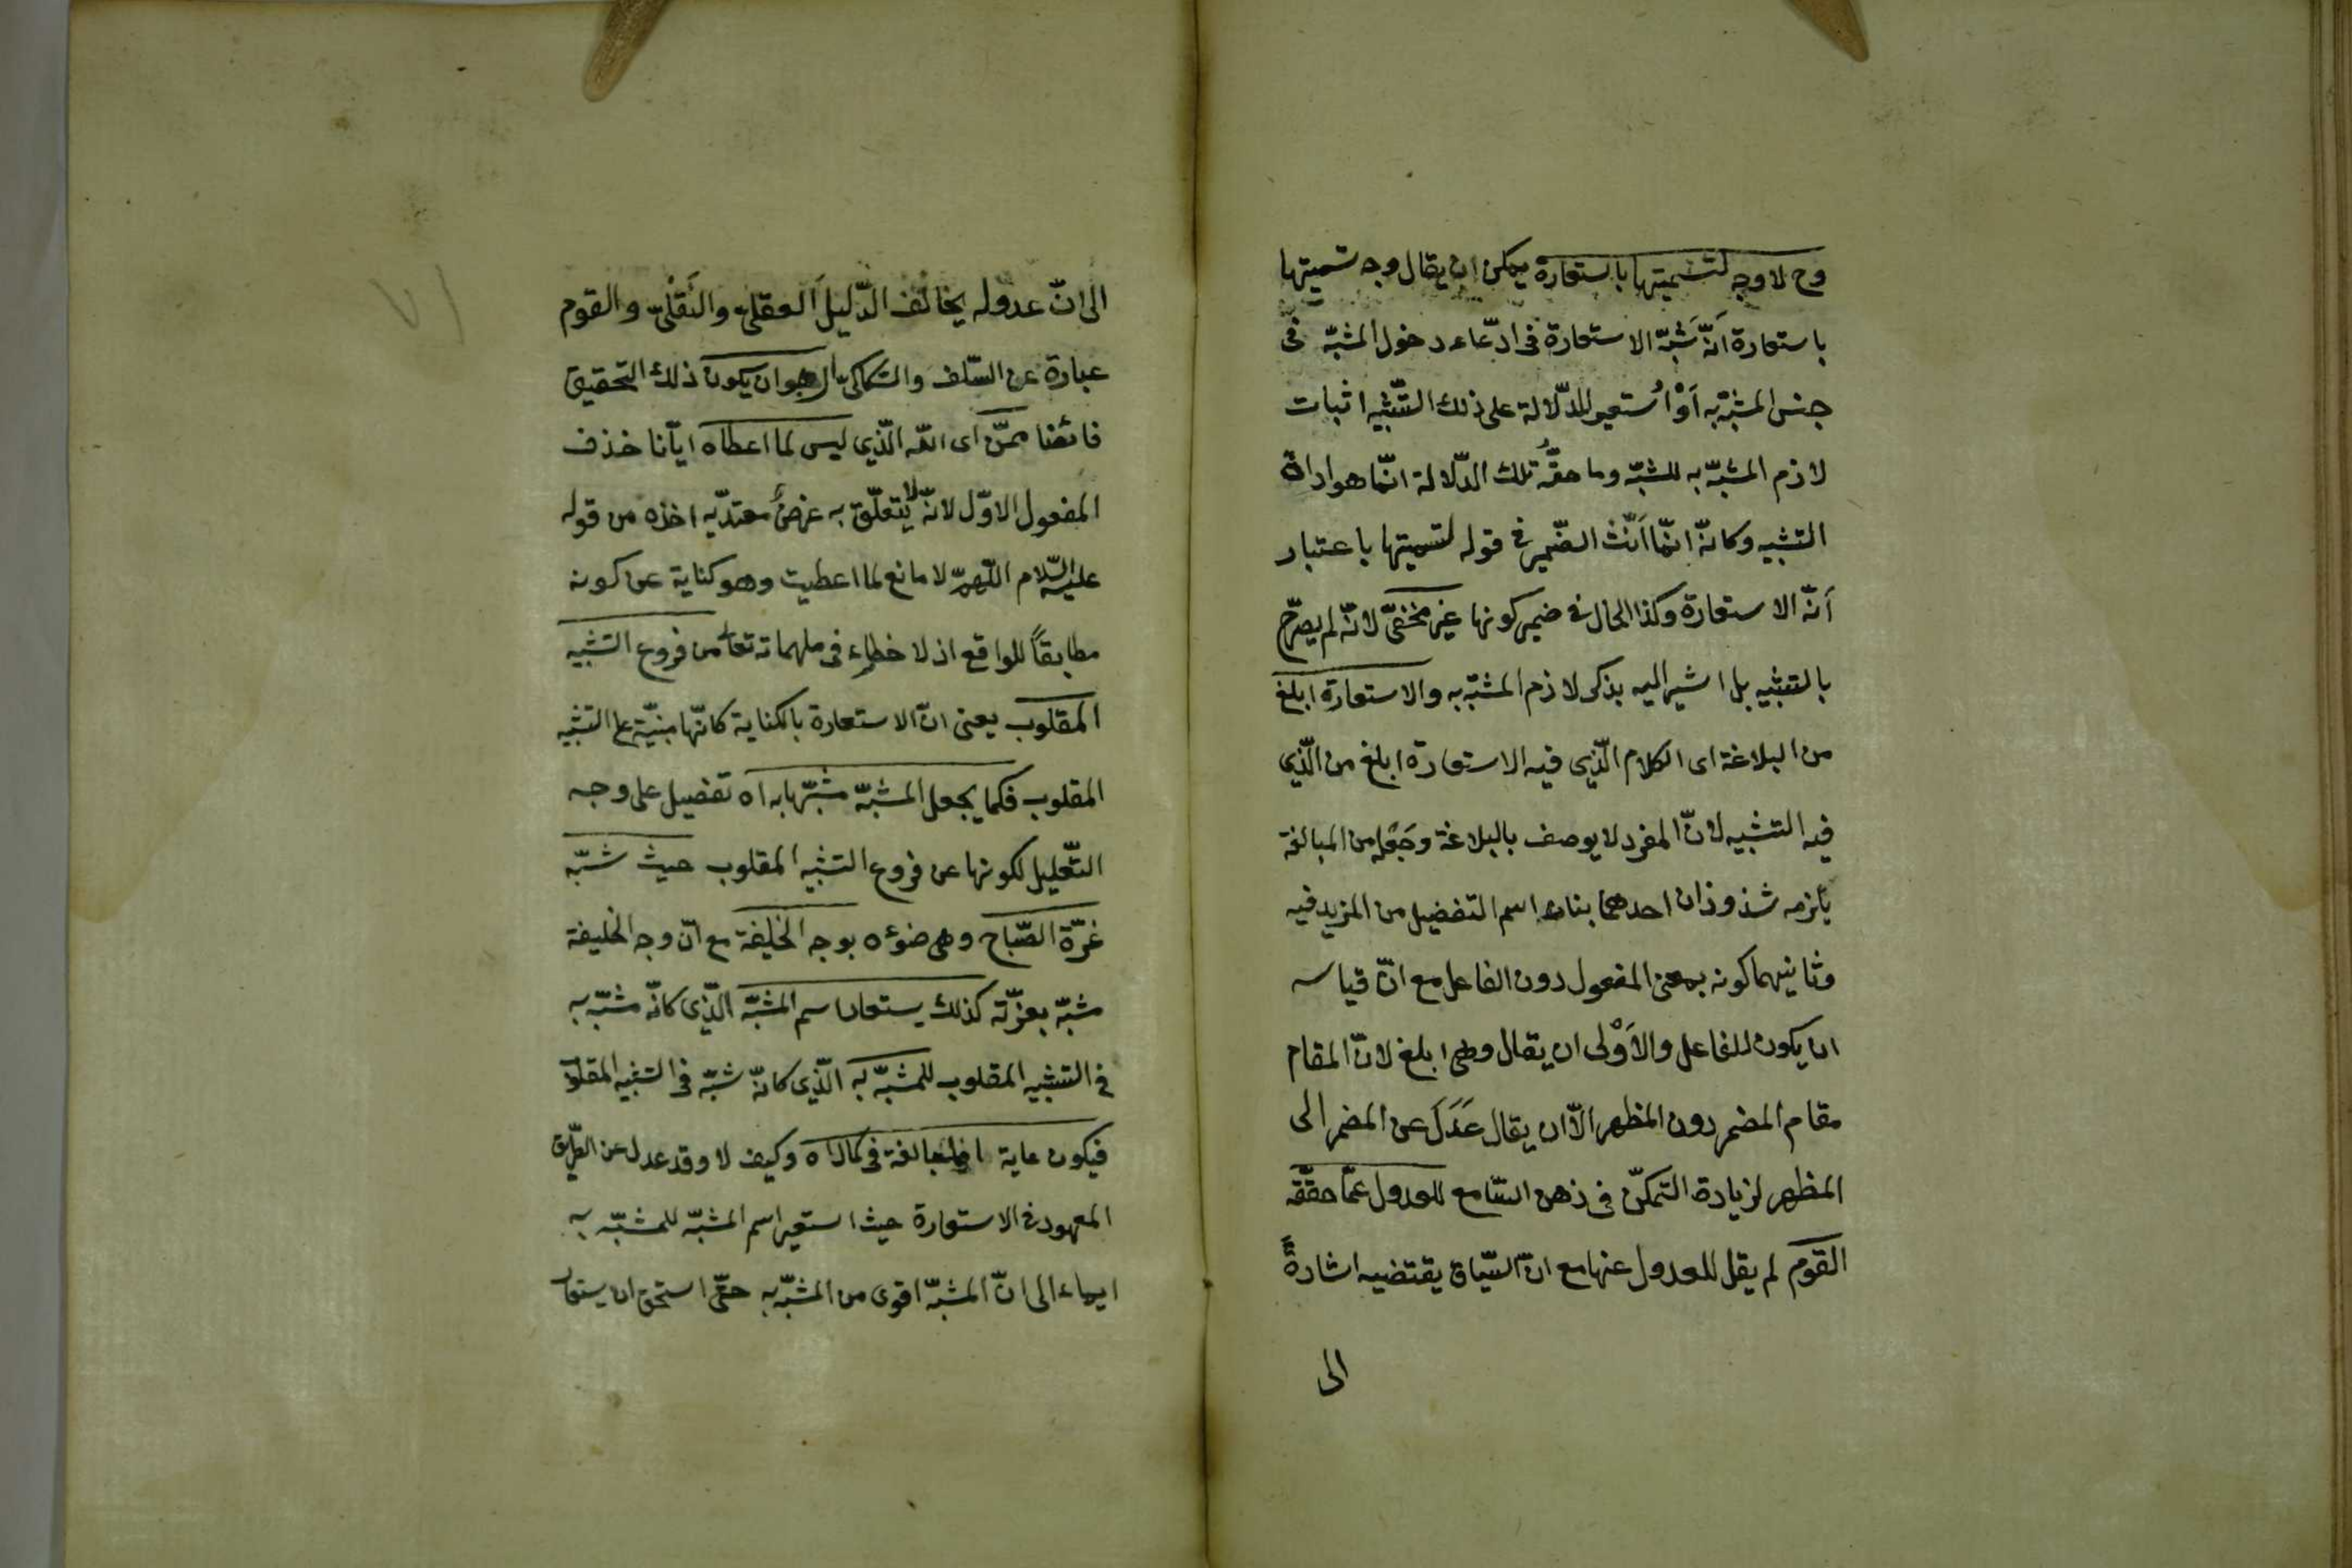 وح لا وجه لتسميتها باستعارة يمكن ان يقال وجه تسميتها
باستعارة اَنّه شَبَّهَ الاستعارة فى ادّعاء دخول المشبّه فى
جنس المشبّه به اَوْ اُستعير للدّلالة على ذلك التّشبيه اثبات
لازم المشبّه به للشبّه وما حقّه تلك الدّلالة انّما هو اداة
التشبيه وكانّه انّما اَنّث الضّمير فى قوله لتسميتها باعتبار
اَنّه الاستعارة وكذا الحال فى ضمير كونها غير مخفىّ لانّه لم يصرّح
بالتشبيه بل اشير اليه بذكر لازم المشبّه به والاستعارة ابلغ
من البلاغة اى الكلام الّذى فيه الاستعارة ابلغ من الّذى
فيه التشبيه لانّ المفرد لا يوصف بالبلاغة وجَعْله من المبالغة
يلزمه شذوذان احدهما بناء اسم التفضيل من المزيد فيه
وثانيهما كونه بمعنى المفعول دون الفاعل مع انّ قياسه
ان يكون للفاعل والاَوْلى ان يقال وهى ابلغ لانّ المقام
مقام المضمر دون المظهر الّا ان يقال عَدَلَ عن المضمر الى
المظهر لزيادة التمكّن فى ذهن السّامع للعدول عمّا حقّقه
القوم لم يقل للعدول عنها مع انّ السّياق يقتضيه اشارةً
الى
الى انّ عدوله يخالف الدّليل العقلىّ والنّقلىّ والقوم
عبارة عن السّلف والسّكاكىّ ارجو ان يكون ذلك التحقيق
فائضا ممّن اى اللّه الّذي ليس لما اعطاه ايّانا حذف
المفعول الاوّل لانّه لا يتعلّق به غرضٌ معتدّ به اخذه من قوله
عليه السّلام اللّهمّ لا مانع لما اعطيت وهو كناية عن كونه
مطابقاً للواقع اذ لا خطاء فى ملهماته تعالى من فروع التشبيه
المقلوب يعنى انّ الاستعارة بالكناية كانّها مبنيّة على التشبيه
المقلوب فكما يجعل المشبّه مشبّها به اه تفصيل على وجه
التّعليل لكونها من فروع التشبيه المقلوب حيث شبّه
غرّة الصّباح وهى ضوءه بوجه الخليفة مع انّ وجه الخليفة
مشبّه بغرّته كذلك يستعار اسم المشبّه الّذى كانّه مشبّه به
فى التشبيه المقلوب للمشبّه به الّذى كانّه شبّه فى التشبيه المقلوب
فيكون غاية فى المبالغة فى كمال اه وكيف لا وقد عدل عن الطّريق
المعهود فى الاستعارة حيث استعير اسم المشبّه للمشبّه به
ايماء الى انّ المشبّه اقوى من المشبّه به حتّى استحق ان يستعار
١٧